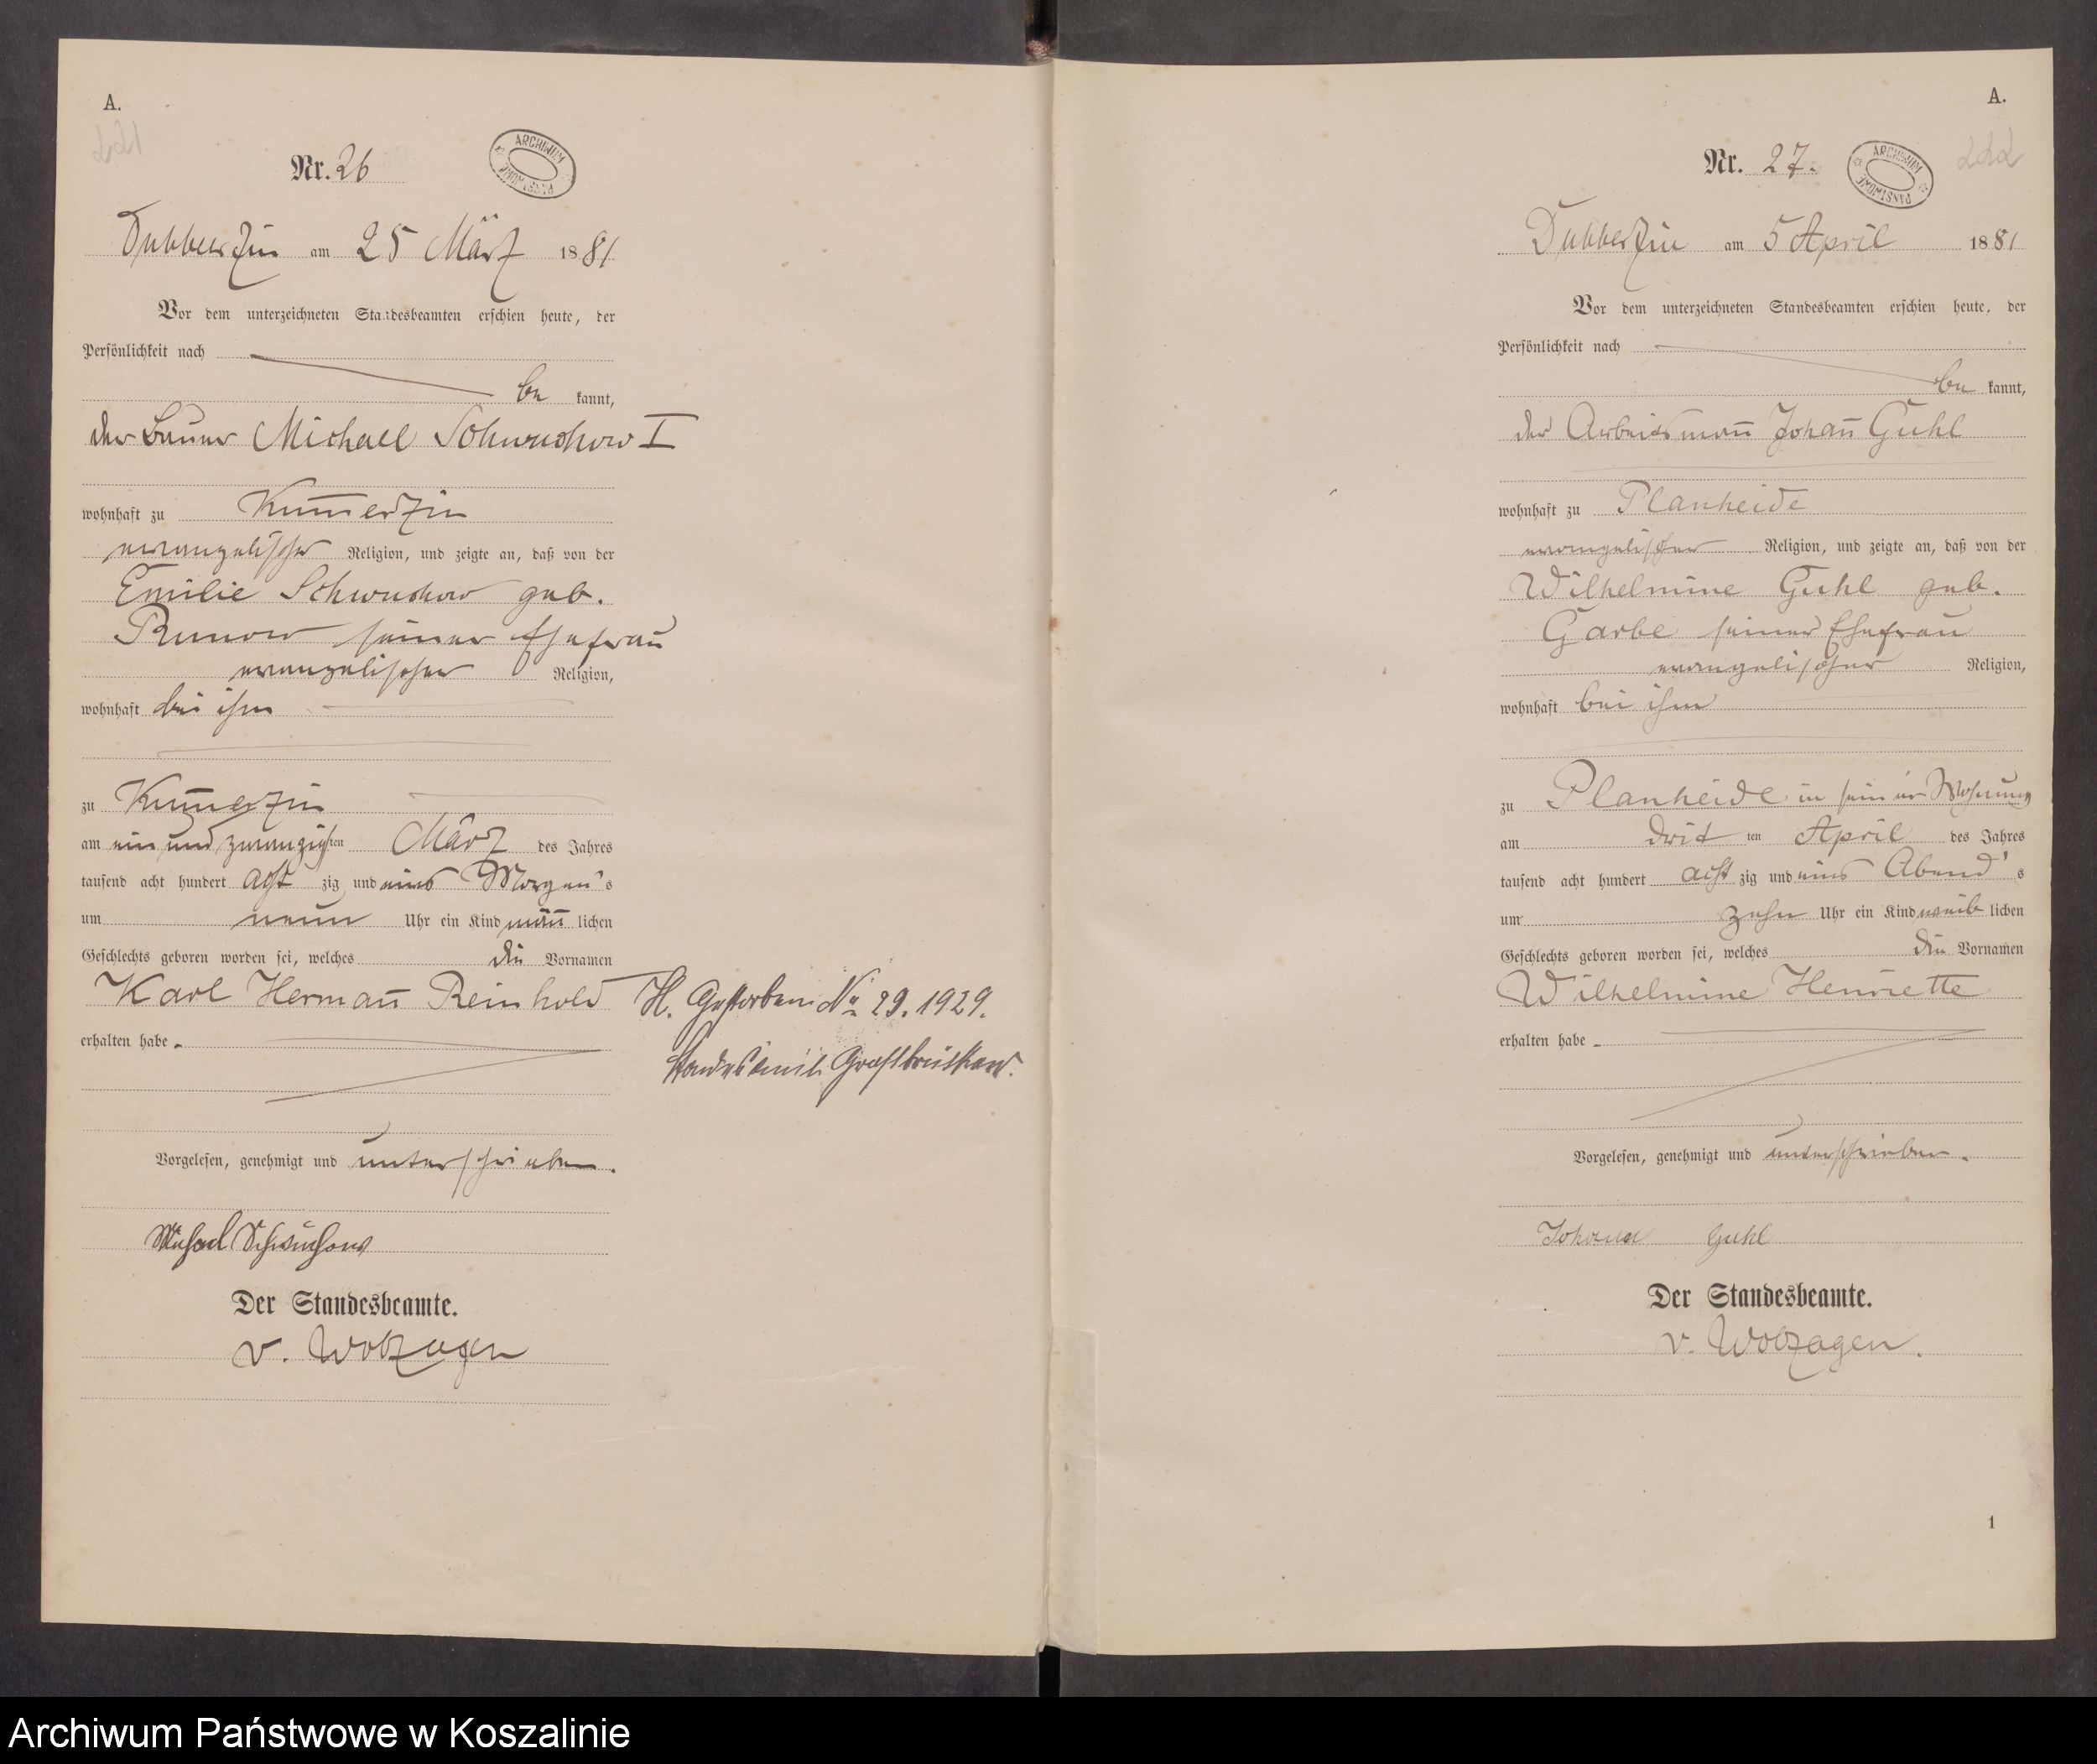 A.
Nr. 26
ARCHIWUM PAŃSTWOWE
Dubberzin am 25 März 1881
Vor dem unterzeichneten Standesbeamten erschien heute, der
Persönlichkeit nach
be kannt,
der Bauer Michael Schwuchow I
wohnhaft zu Kum̅erzin
evangelischer Religion, und zeigte an, daß von der
Emilie Schwuchow geb.
Runow seiner Ehefrau
evangelischer Religion,
wohnhaft bei ihm
zu Kum̅erzin
am ein und zwanzigsten März des Jahres
tausend acht hundert acht zig und eins Morgen's
um neun Uhr ein Kind män̅ lichen
Geschlechts geboren worden sei, welches die Vornamen
Karl Herman̅ Reinhold
erhalten habe.
H. Gestorben No 29. 1929.
Standesamt Großbrüskow.
Vorgelesen, genehmigt und unterschrieben.
Michael Schwuchow
Der Standesbeamte.
v. Wolzogen
A.
222
Nr. 27.
ARCHIWUM PAŃSTWOWE
Dubberzin am 5 April 1881
Vor dem unterzeichneten Standesbeamten erschien heute, der
Persönlichkeit nach
be kannt,
der Arbeitsman̅ Johan̅ Guhl
wohnhaft zu Planheide
evangelischer Religion, und zeigte an, daß von der
Wilhelmine Guhl geb.
Garbe seiner Ehefrau
evangelischer Religion,
wohnhaft bei ihm
zu Planheide in seiner Wohnung
am dritten April des Jahres
tausend acht hundert acht zig und eins Abend's
um zehn Uhr ein Kind weib lichen
Geschlechts geboren worden sei, welches die Vornamen
Wilhelmine Henriette
erhalten habe.
Vorgelesen, genehmigt und unterschrieben.
Johann Guhl
Der Standesbeamte.
v. Wolzogen.
1
Archiwum Państwowe w Koszalinie